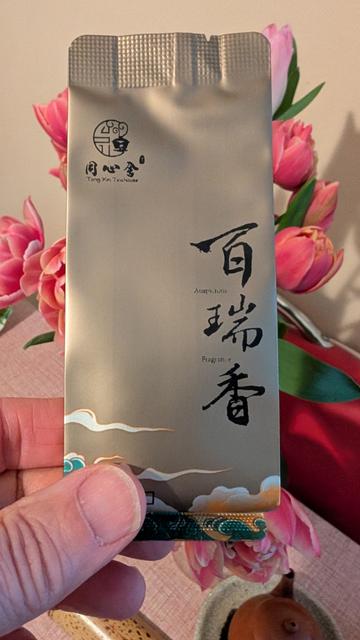 同心舍
Tong Xin Teahouse
百
Auspicious
瑞
Fragrance
香